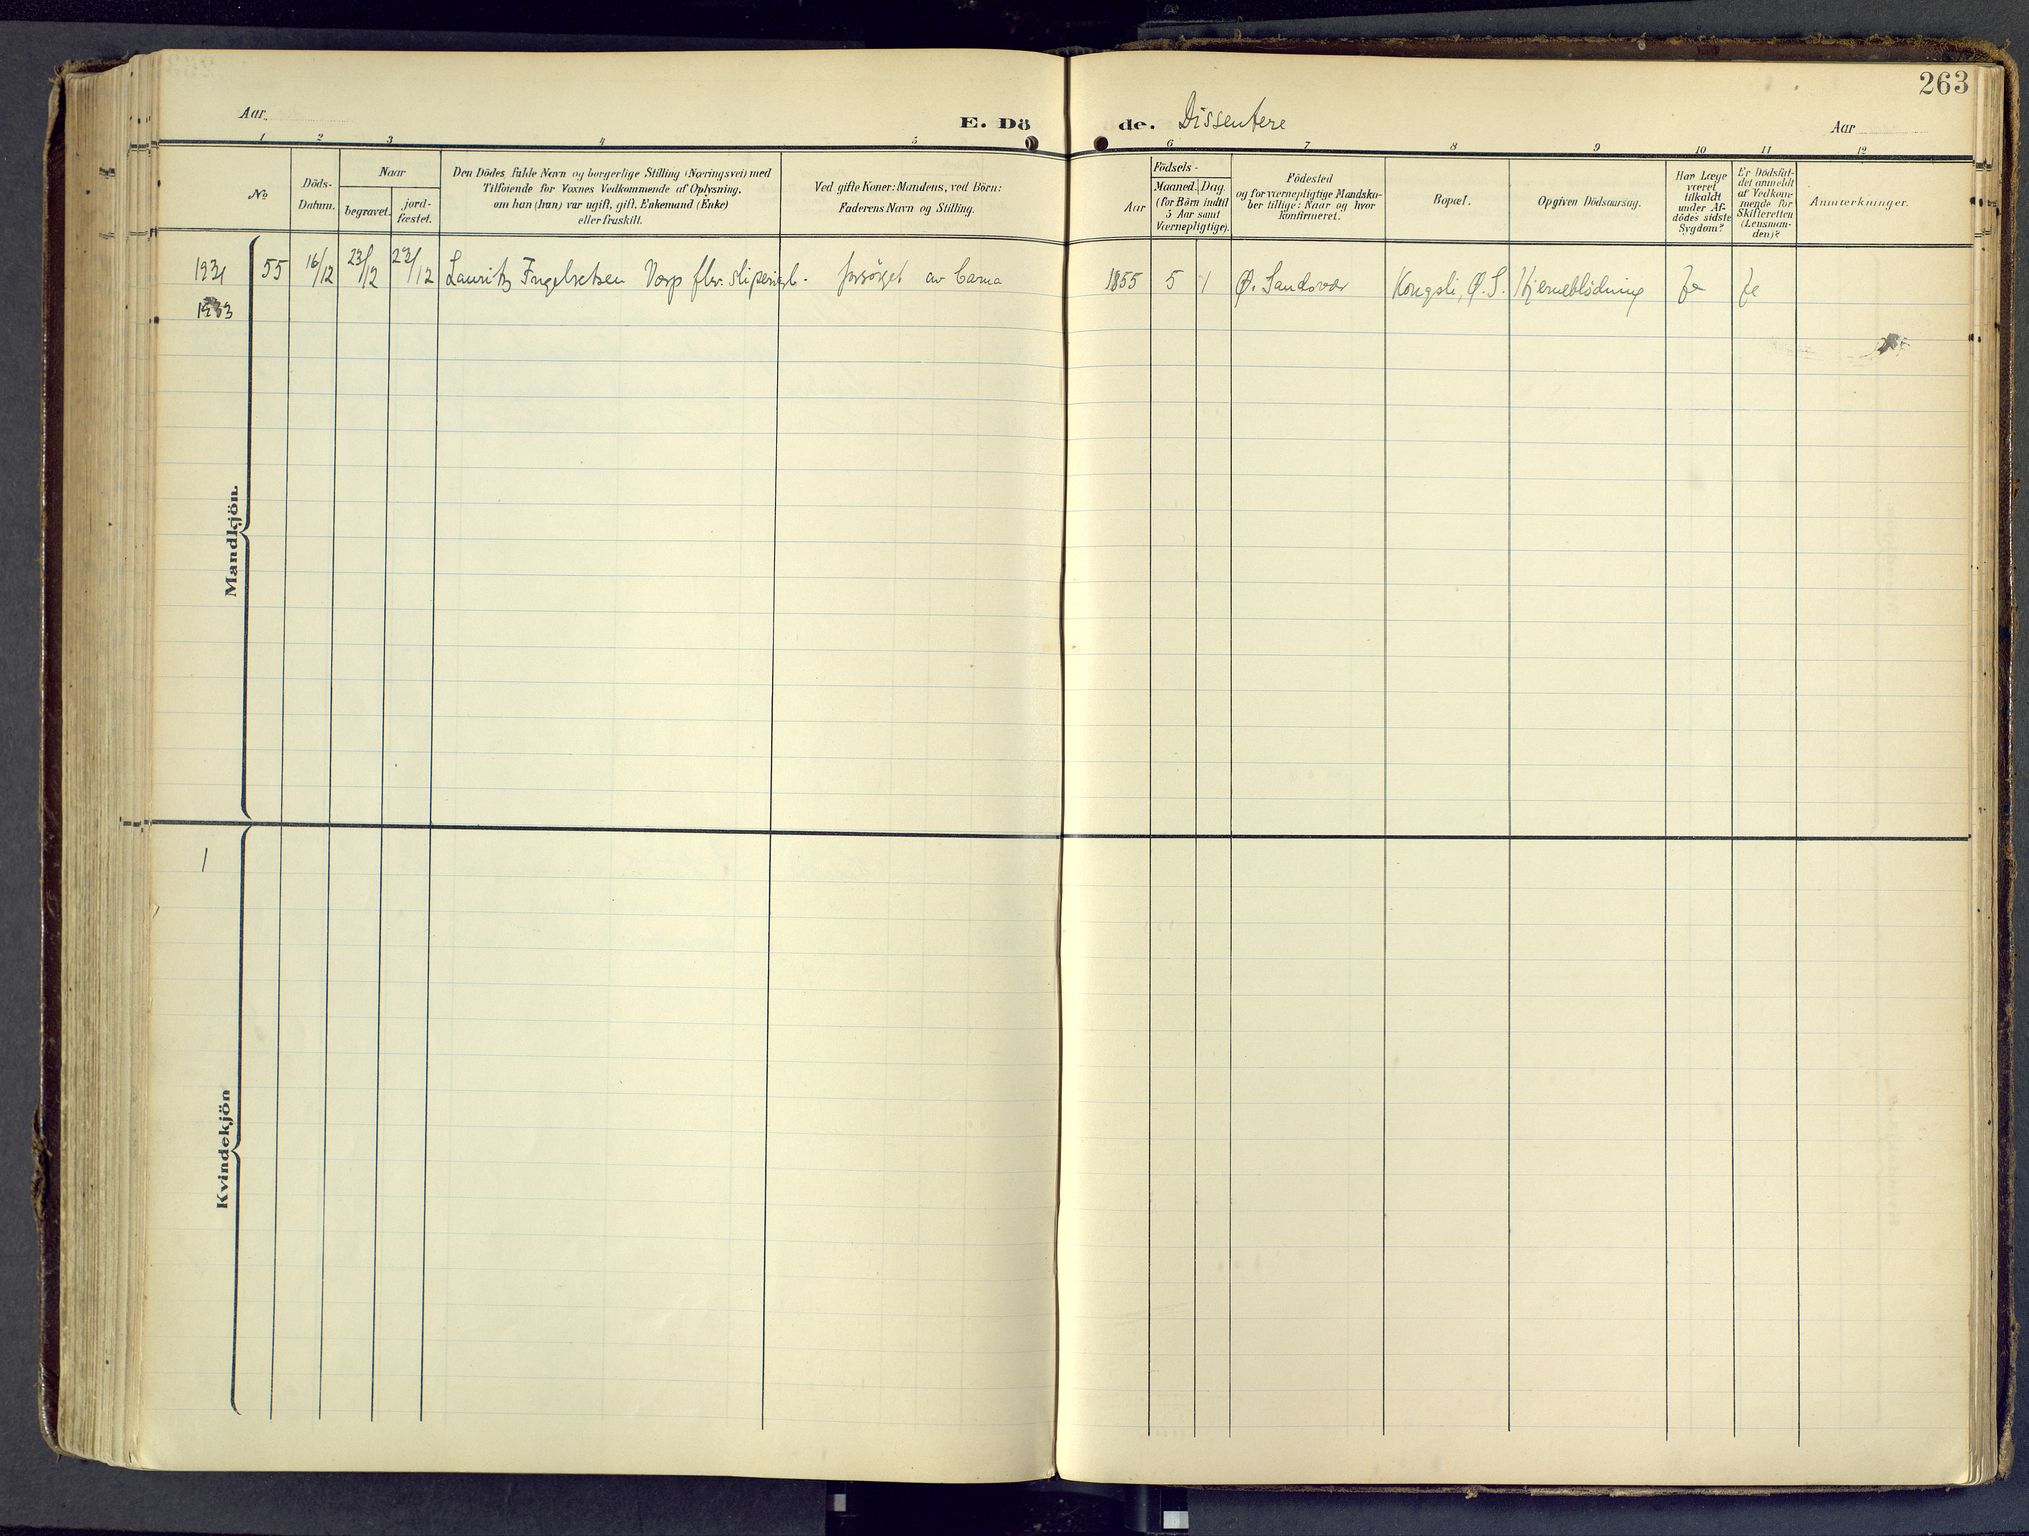 263
Aar
E. Dö de. Dissentere
Aar
1 2 3 4 5 6 7 8 9 10 11 12
No
Döds-
Datum.
Naar
begravet.
jord-
fæstet.
Den Dödes fulde Navn og borgerlige Stilling (Næringsvei) med
Tilföiende for Voxnes Vedkommende af Oplysning,
om han (hun) var ugift, gift, Enkemand (Enke)
eller fraskilt.
Ved gifte Koner: Mandens, ved Börn:
Faderens Navn og Stilling.
Födsels-
Aar
Maaned. Dag.
(for Börn indtil
5 Aar samt
Værnepligtige).
Födested
og for værnepligtige Mandska-
ber tillige: Naar og hvor
konfirmeret.
Bopæl.
Opgiven Dödsaarsag.
Har Læge
været
tilkaldt
under Af-
dödes sidste
Sygdom?
Er Dödsfal-
det anmeldt
af Vedkom-
mende for
Skifteretten
(Lensman-
den)?
Anmærkninger.
1931 55 16/12 23/12 23/12 Lauritz Ingelretsen Vorp flv. sliperiarb. forsörget av barna 1855 5 1 Ø. Sandsvær Kongsli, Ø.S. Hjerneblödning Ja Ja
1933
Mandkjön.
1
Kvindekjön